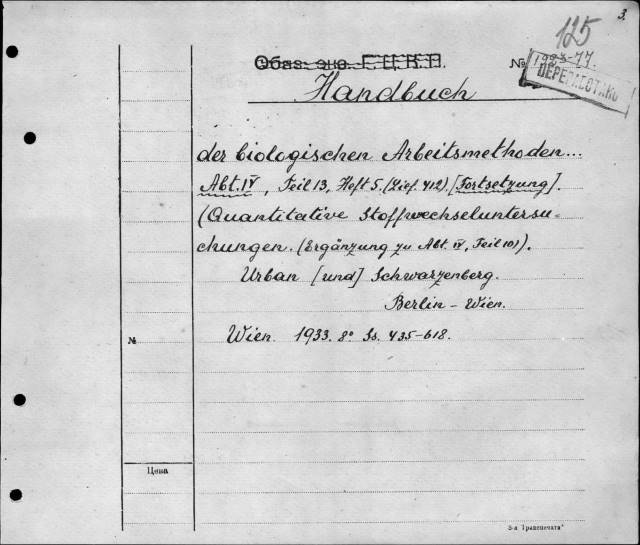 3.
125
Обяз. экз. Г. Ц. К. П. №
1933-77.
ПЕРЕРАБОТАНО
Handbuch
der biologischen Arbeitsmethoden...
Abt. IV, Teil 13, Heft 5. (Lief. 412). [Fortsetzung].
(Quantitative Stoffwechseluntersu-
chungen. (Ergänzung zu Abt. IV, Teil 10)).
Urban [und] Schwarzenberg.
Berlin - Wien.
№ Wien. 1933. 8° Ss. 435-618.
Цена
3-я Транспечать